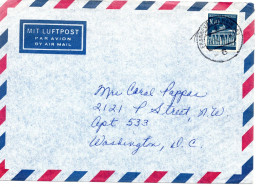 MIT LUFTPOST
PAR AVION
BY AIR MAIL
Mrs Carol Pappas
2121 P Street, N.W.
Apt 533
Washington, D.C.